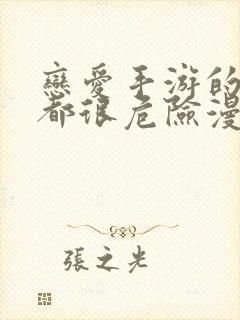 戀愛手游的
都很危險漫
張之光